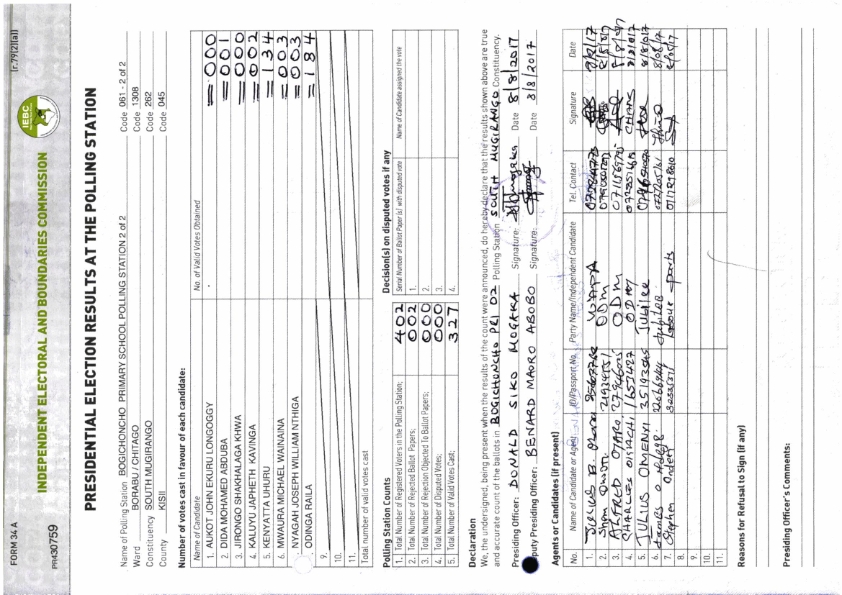 FORM 34 A
(r.79(2)(a))
IEBC
INDEPENDENT ELECTORAL AND BOUNDARIES COMMISSION
PR430759
PRESIDENTIAL ELECTION RESULTS AT THE POLLING STATION
Name of Polling Station BOGICHONCHO PRIMARY SCHOOL POLLING STATION 2 of 2 Code 061 - 2 of 2
Ward BORABU / CHITAGO Code 1308
Constituency SOUTH MUGIRANGO Code 262
County KISII Code 045
Number of votes cast in favour of each candidate:
Name of Candidate No. of Valid Votes Obtained
1. AUKOT JOHN EKURU LONGOGGY = 000
2. DIDA MOHAMED ABDUBA = 001
3. JIRONGO SHAKHALAGA KHWA = 000
4. KALUYU JAPHETH KAVINGA = 002
5. KENYATTA UHURU = 134
6. MWAURA MICHAEL WAINAINA = 003
NYAGAH JOSEPH WILLIAM NTHIGA = 003
ODINGA RAILA = 184
9.
10.
11.
Total number of valid votes cast
Polling Station Counts
1. Total Number of Registered Voters in the Polling Station; 402
2. Total Number of Rejected Ballot Papers; 002
3. Total Number of Rejection Objected To Ballot Papers; 000
4. Total Number of Disputed Votes; 000
5. Total Number of Valid Votes Cast; 327
Decision(s) on disputed votes if any
Serial Number of Ballot Paper (s) with disputed vote Name of Candidate assigned the vote
1.
2.
3.
4.
Declaration
We, the undersigned, being present when the results of the count were announced, do hereby declare that the results shown above are true
and accurate count of the ballots in BOGICHONCHO PRI 02 Polling Station SOUTH MUGIRANGO Constituency.
Presiding Officer: DONALD SIKO MOGAKA Signature: Date 8/8/2017
puty Presiding Officer: BENARD MAORO ABOBO Signature: Date 8/8/2017
Agents or Candidates (if present)
No. Name of Candidate or Agent ID/Passport No. Party Name/Independent Candidate Tel. Contact Signature Date
1.
2. ODM
3. ALFRED ODM
4. CHARLES ODM
5. JULIUS ONKENYI 35193565 JUBILEE
6.
7. Stephen
8.
9.
10.
11.
Reasons for Refusal to Sign (if any)
Presiding Officer's Comments: